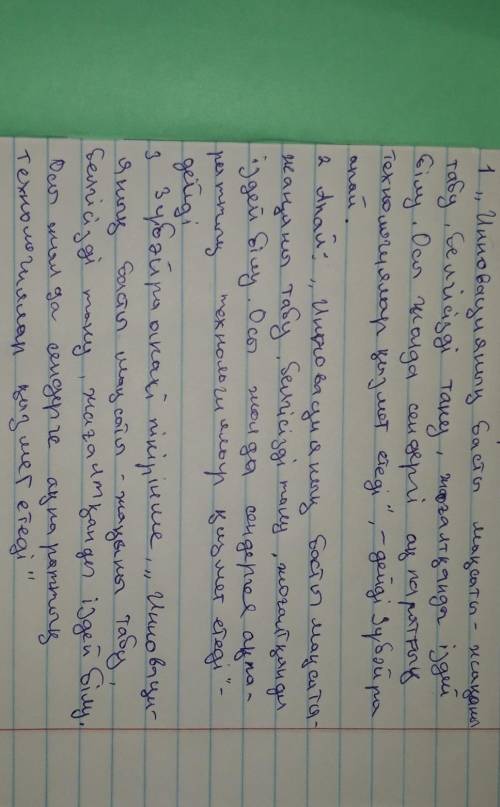 1 „Инновацияның басты мақсаты - жаңаны
табу, белгісізді тану, жоғалтқанды іздей
білу. Осы жолда сендерге ақпараттық
технологиялар қызмет етеді", - дейді Зүбәйра
апай.
2 Апай: „Инновацияның басты мақсаты-
жаңаны табу, белгісізді тану, жоғалтқанды
іздей білу. Осы жолда сендерге ақпа-
раттық технологиялар қызмет етеді"-
дейді
3 Зүбәйра апай пікірінше, „Инноваци-
яның басты мақсаты - жаңаны табу,
белгісізді тану, жоғалтқанды іздей білу.
Осы жолда сендерге ақпараттық
технологиялар қызмет етеді"